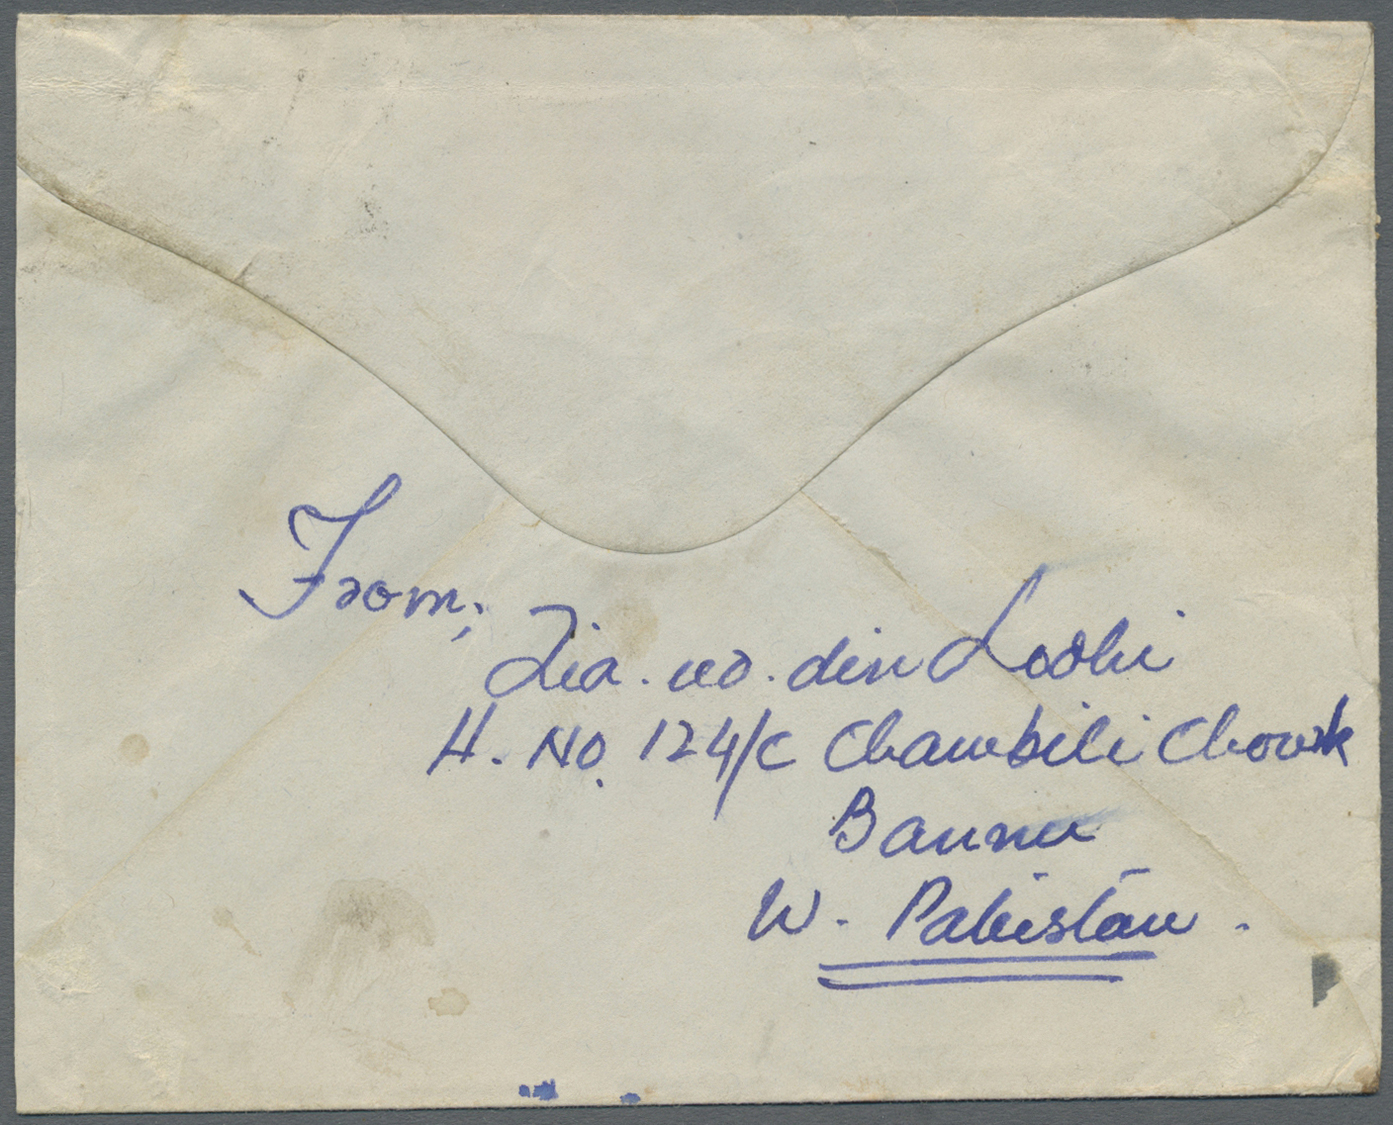 From;
Zia. ud. din Lodhi
H. No. 124/C Chambili Chowk
Bannu
W. Pakistan.